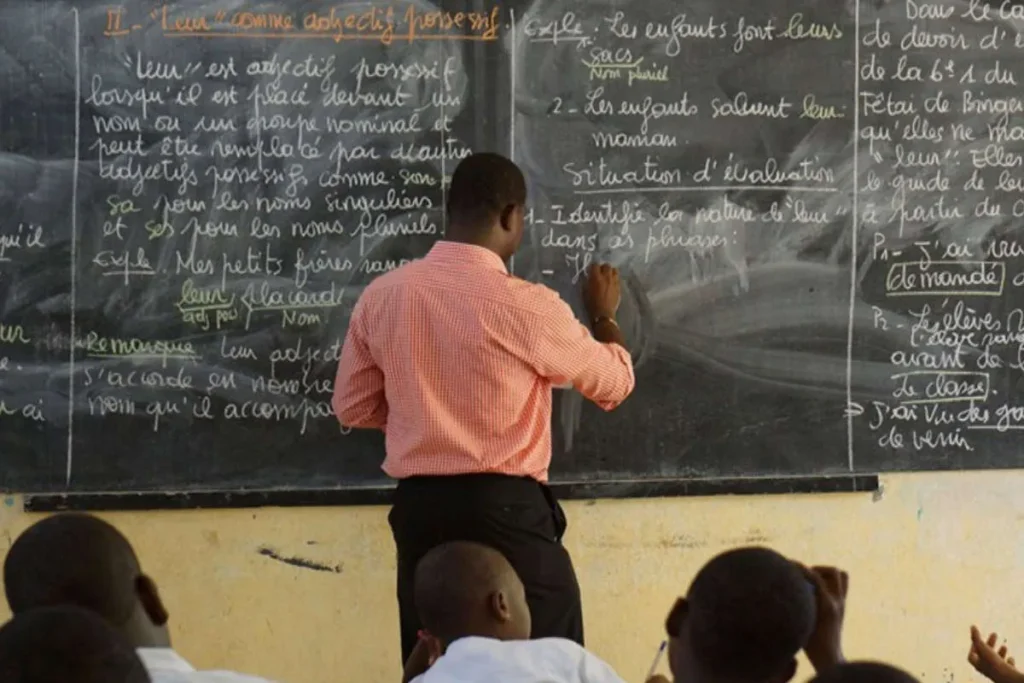 qu'il
ai
II- "Leur" comme adjectif possessif
"Leur" est adjectif possessif
lorsqu'il est placé devant un
nom ou un groupe nominal et
peut être remplacé par d'autre
adjectifs possessifs comme: son
sa pour les noms singuliers
et ses pour les noms pluriels.
Exple. Mes petits frères
leur placard
adj pos Nom
Remarque Leur adject
s'accorde en nombre
nom qu'il accompa
Exple: Les enfants font leurs
sacs
Nom pluriel
2- Les enfants saluent leur
maman.
Situation d'évaluation
1- Identifie la nature de "leur"
dans as phrases:
- Il
Dans le ca
de devoir d'e
de la 6e 1 du
Fétai de Binger
qu'elles ne ma
"leur". Elles
le guide de leu
à partir du c
P1- J'ai
demandé
P2- L'élèves
avant de l
Le classe
⇒ J'ai vu des
de venir.